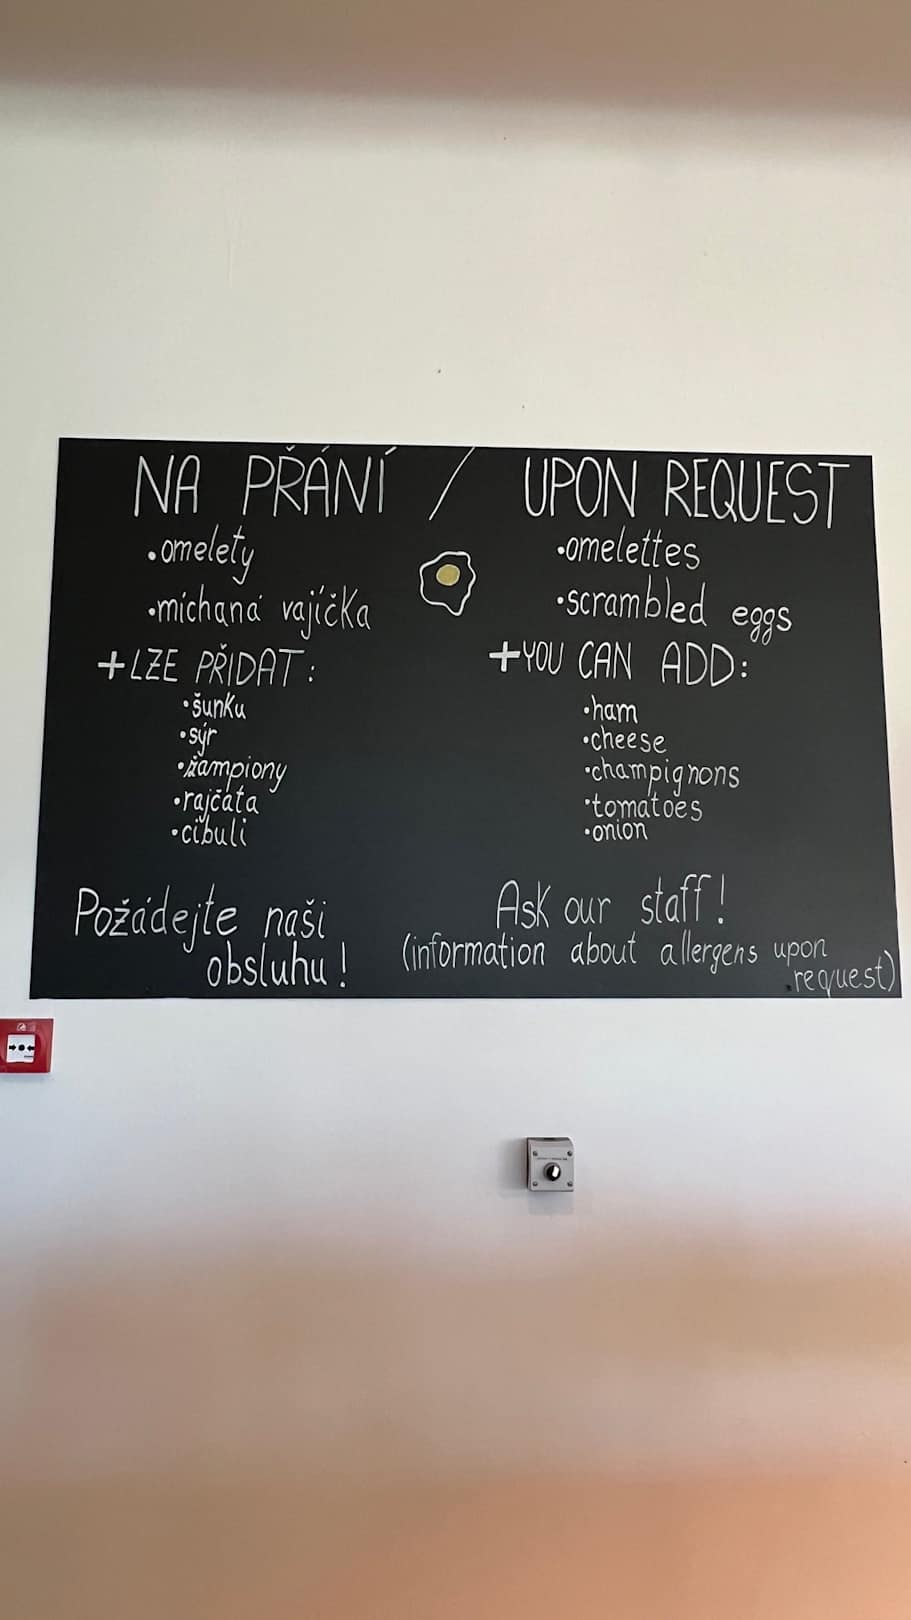 NA PŘÁNÍ / UPON REQUEST
•omelety
•míchaná vajíčka
+LZE PŘIDAT:
•šunku
•sýr
•žampiony
•rajčata
•cibuli
Požádejte naši
obsluhu!
•omelettes
•scrambled eggs
+YOU CAN ADD:
•ham
•cheese
•champignons
•tomatoes
•onion
Ask our staff!
(information about allergens upon
request)